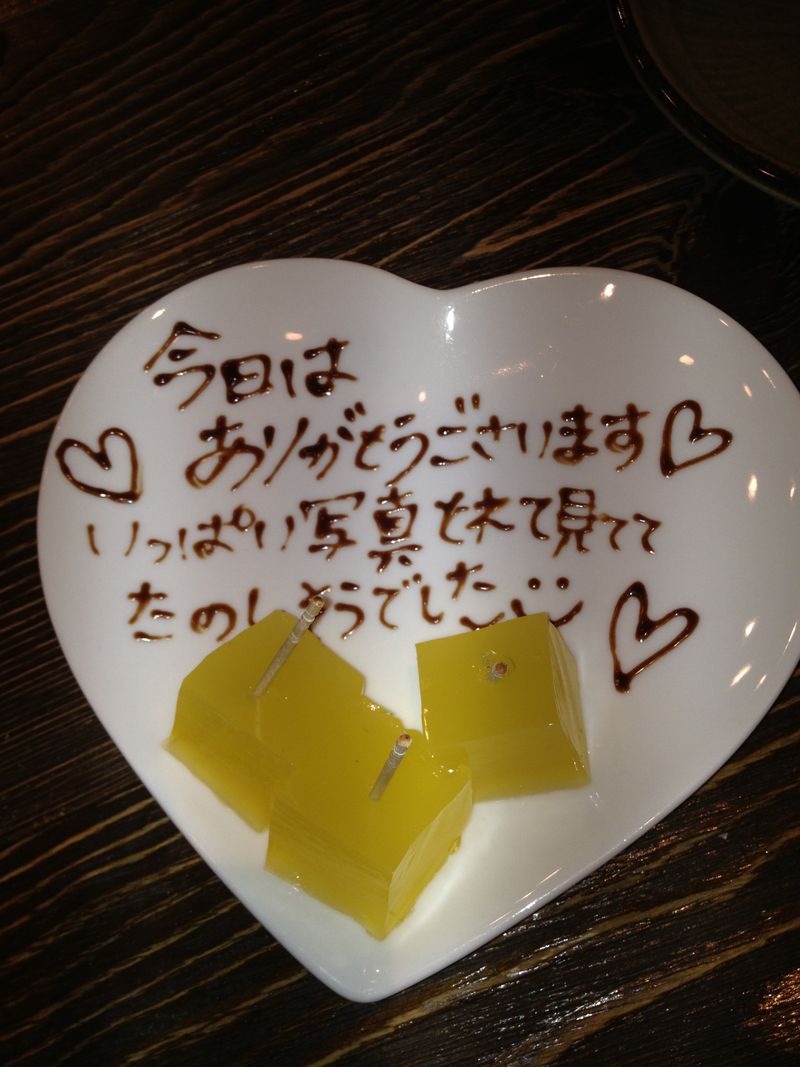 今日は
ありがとうございます
いっぱい写真とれて見てて
たのしそうでした